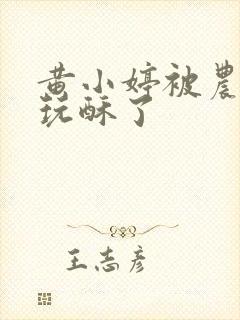 黄小婷被農
玩酥了
王志彦